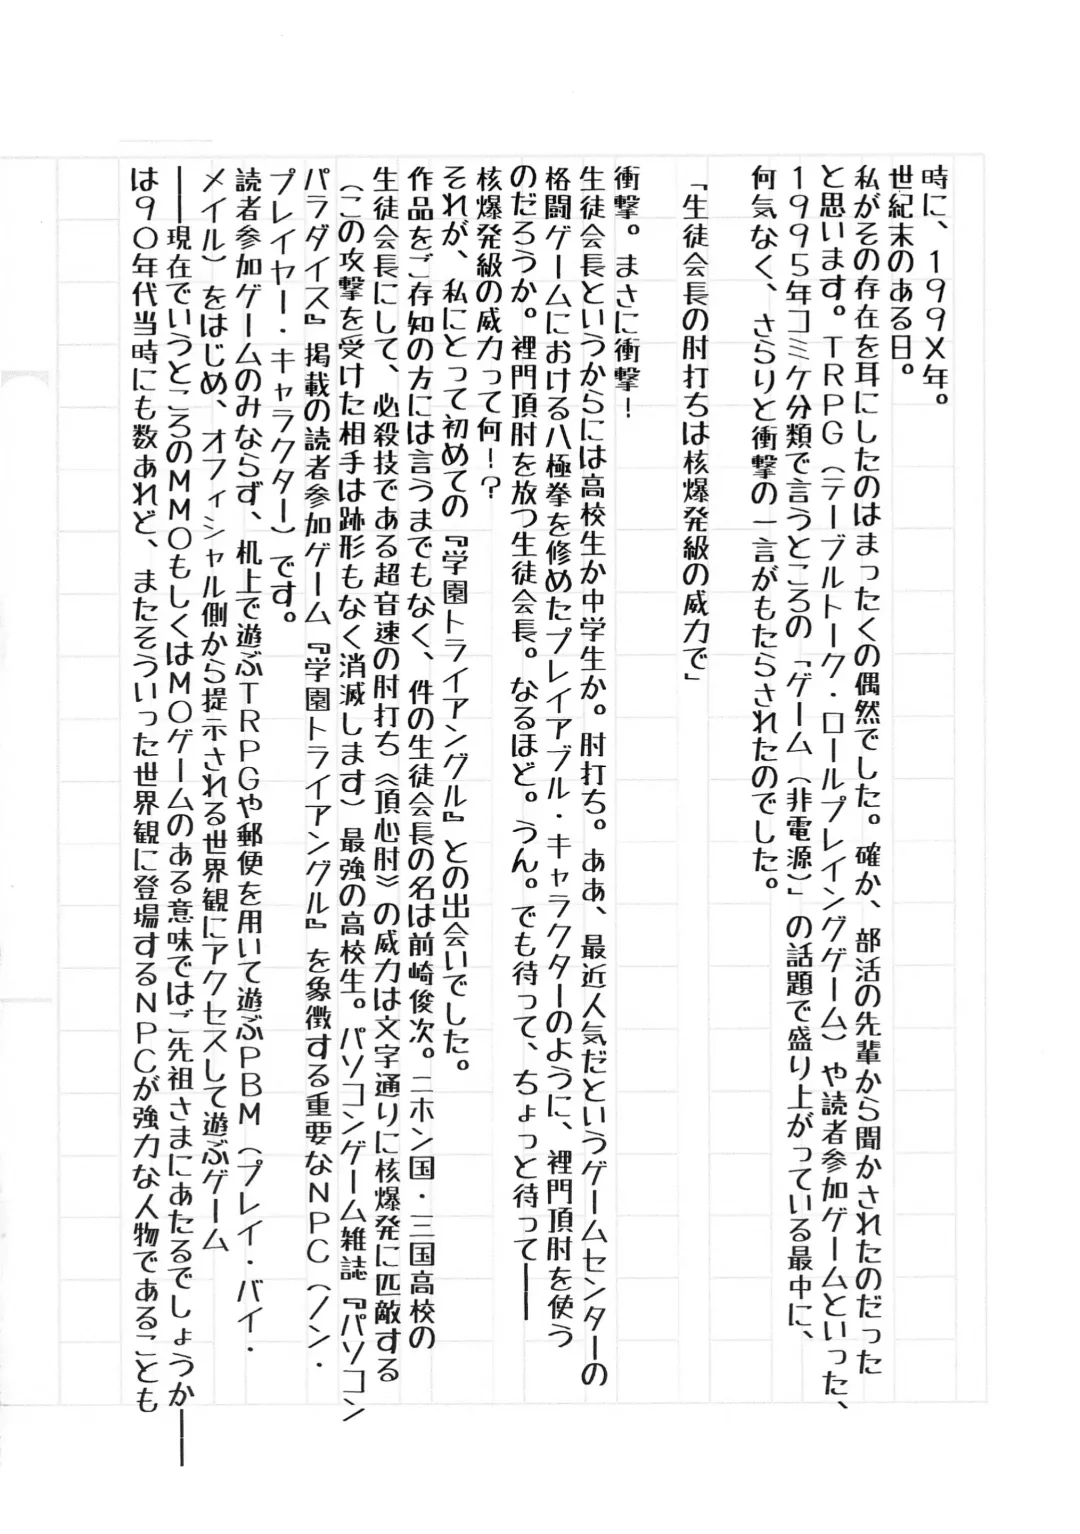 時に、199X年。
世紀末のある日。
私がその存在を耳にしたのはまったくの偶然でした。確か、部活の先輩から聞かされたのだった
と思います。TRPG（テーブルトーク・ロールプレイングゲーム）や読者参加ゲームといった、
1995年コミケ分類で言うところの「ゲーム（非電源）」の話題で盛り上がっている最中に、
何気なく、さらりと衝撃の一言がもたらされたのでした。
「生徒会長の肘打ちは核爆発級の威力で」
衝撃。まさに衝撃！
生徒会長というからには高校生か中学生か。肘打ち。ああ、最近人気だというゲームセンターの
格闘ゲームにおける八極拳を修めたプレイアブル・キャラクターのように、裡門頂肘を使う
のだろうか。裡門頂肘を放つ生徒会長。なるほど。うん。でも待って、ちょっと待って――
核爆発級の威力って何！？
それが、私にとって初めての『学園トライアングル』との出会いでした。
作品をご存知の方には言うまでもなく、件の生徒会長の名は前崎俊次。ニホン国・三国高校の
生徒会長にして、必殺技である超音速の肘打ち《頂心肘》の威力は文字通りに核爆発に匹敵する
（この攻撃を受けた相手は跡形もなく消滅します）最強の高校生。パソコンゲーム雑誌『パソコン
パラダイス』掲載の読者参加ゲーム『学園トライアングル』を象徴する重要なNPC（ノン・
プレイヤー・キャラクター）です。
読者参加ゲームのみならず、机上で遊ぶTRPGや郵便を用いて遊ぶPBM（プレイ・バイ・
メイル）をはじめ、オフィシャル側から提示される世界観にアクセスして遊ぶゲーム
――現在でいうところのMMOもしくはMOゲームのある意味ではご先祖さまにあたるでしょうか――
は90年代当時にも数あれど、またそういった世界観に登場するNPCが強力な人物であることも